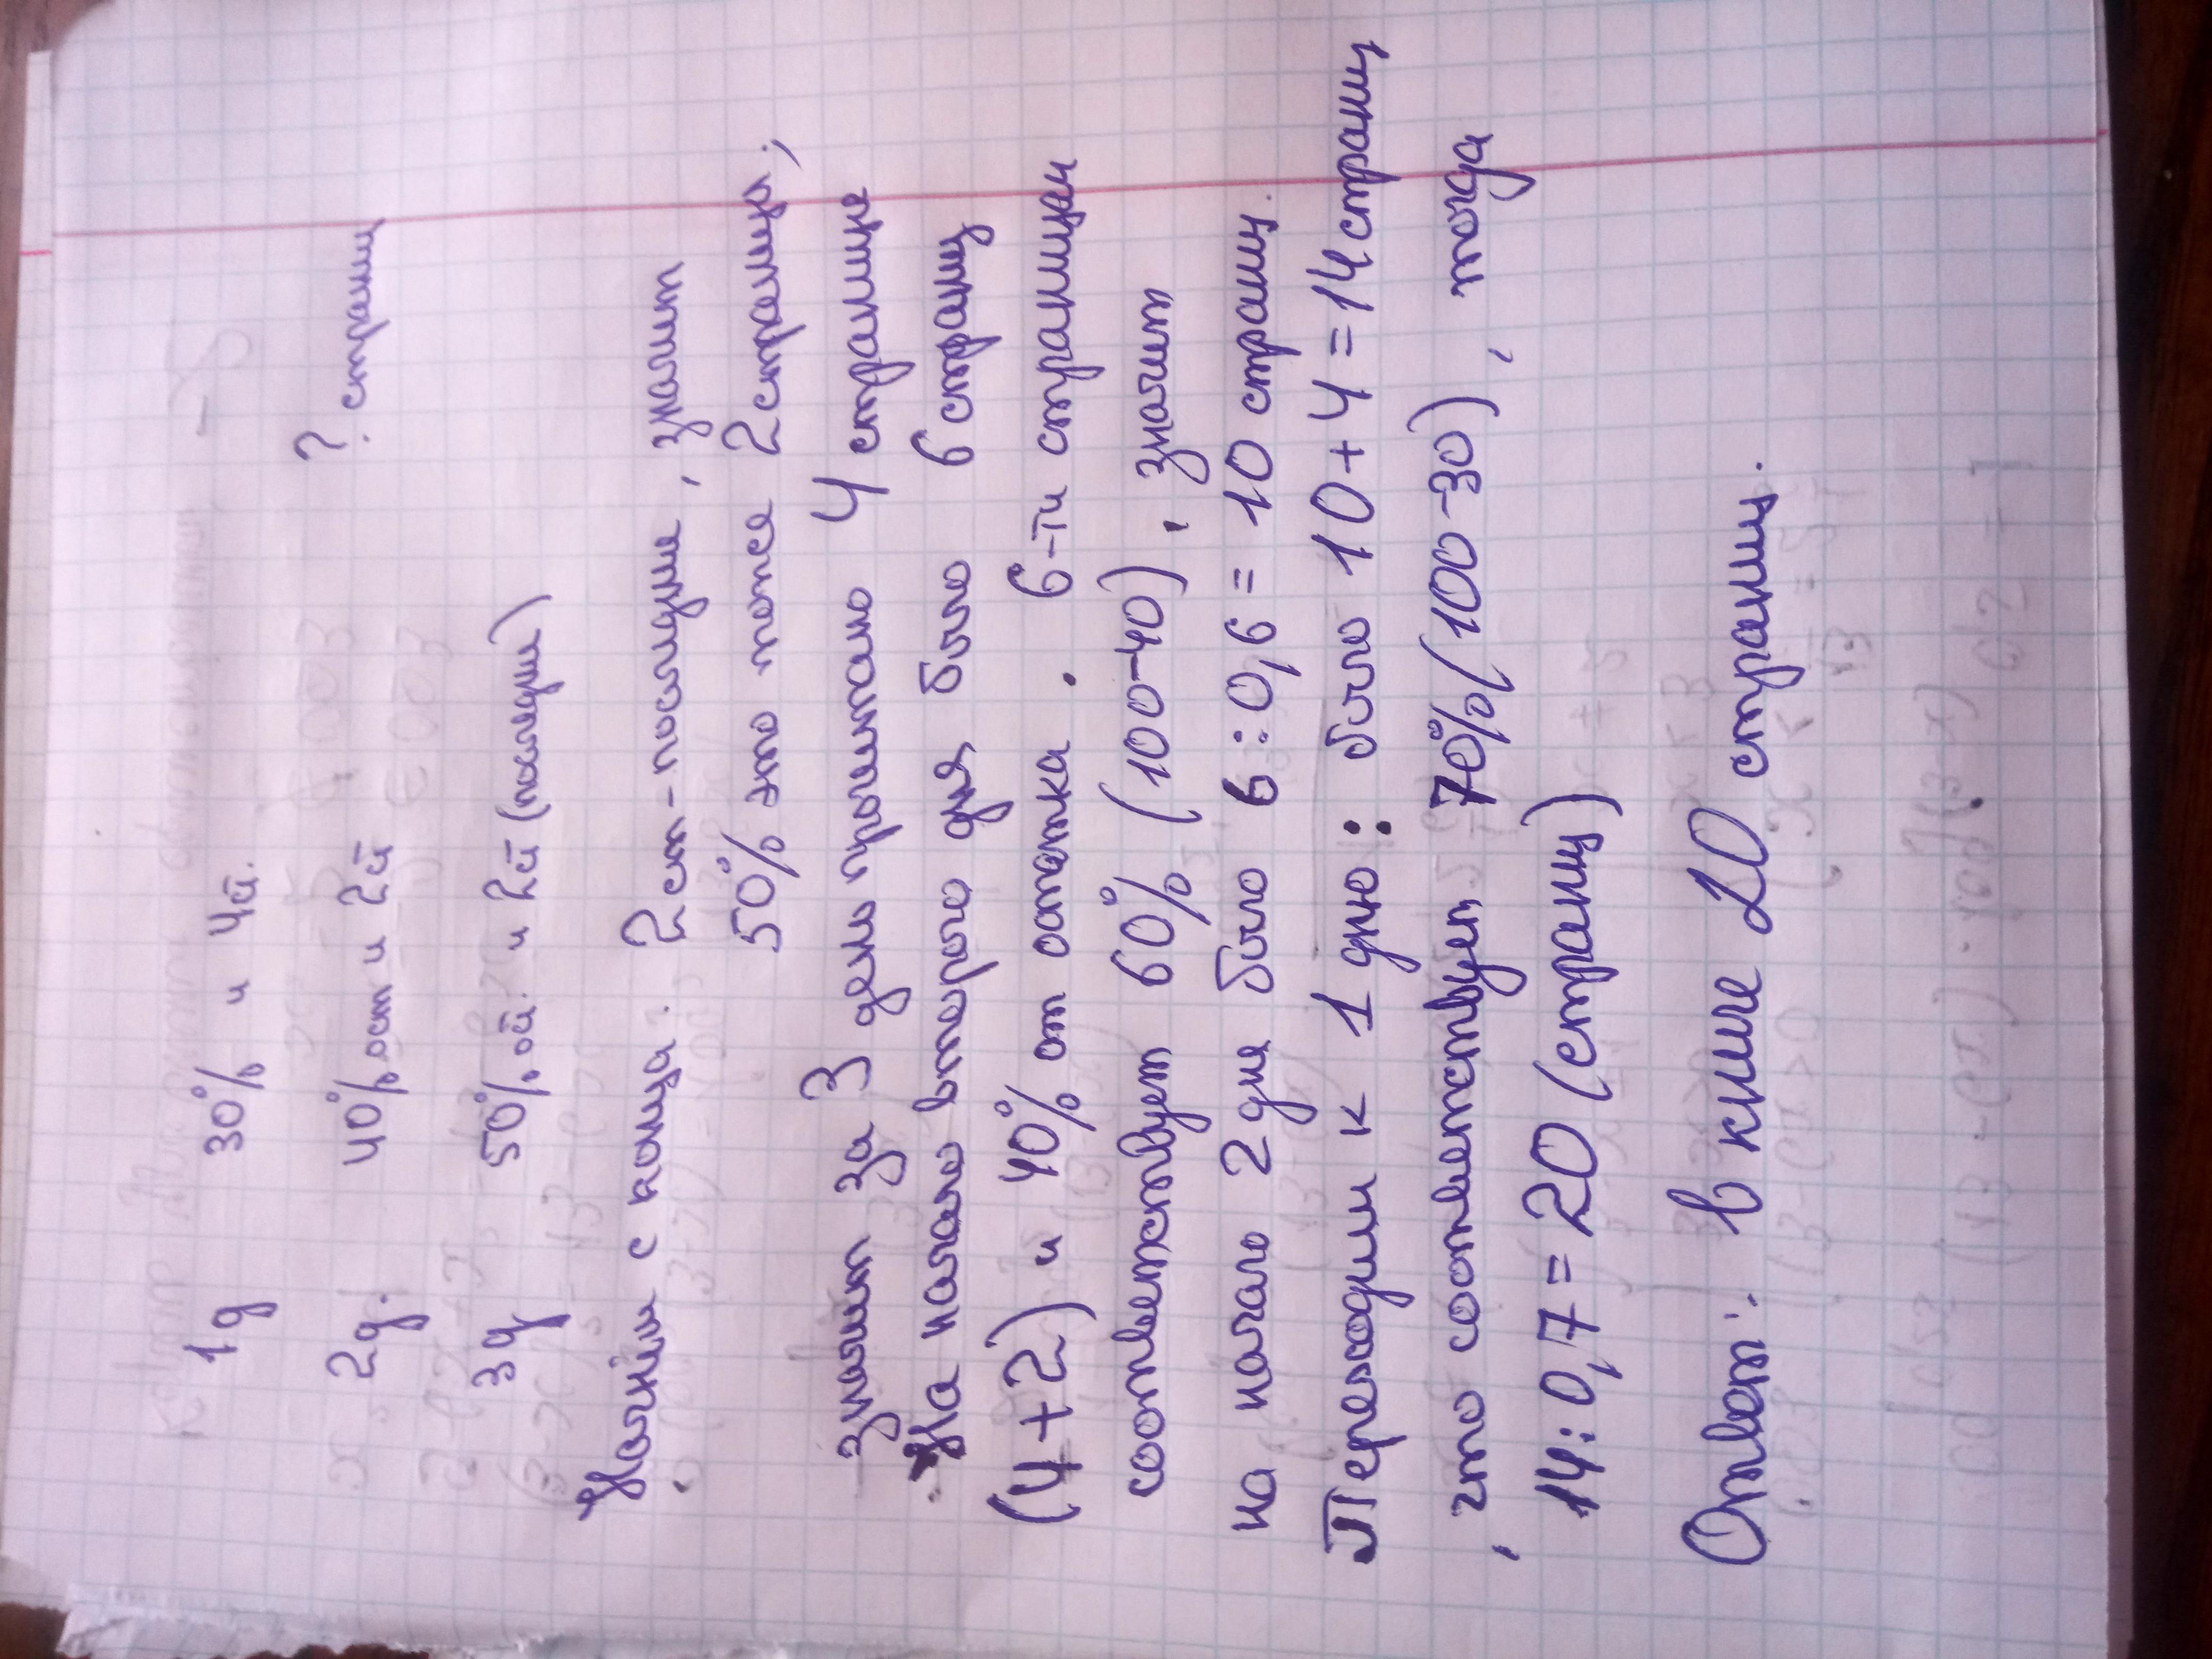 1д 30% и 4й. ? страниц
2д. 40% ост и 2й
3д 50% ой. и 2й (последние)
Начнём с конца. 2 ст - последние, значит
50% это тоже 2 страницы;
значит за 3 день прочитано 4 страницы
На начало второго дня было 6 страниц
(4+2) и 40% от остатка. 6-ти страницам
соответствует 60% (100-40), значит
на начало 2 дня было 6:0,6 = 10 страниц.
Переходим к 1 дню: было 10+4=14 страниц
, что соответствует 70% (100-30), тогда
14:0,7=20 (страниц)
Ответ: в книге 20 страниц.